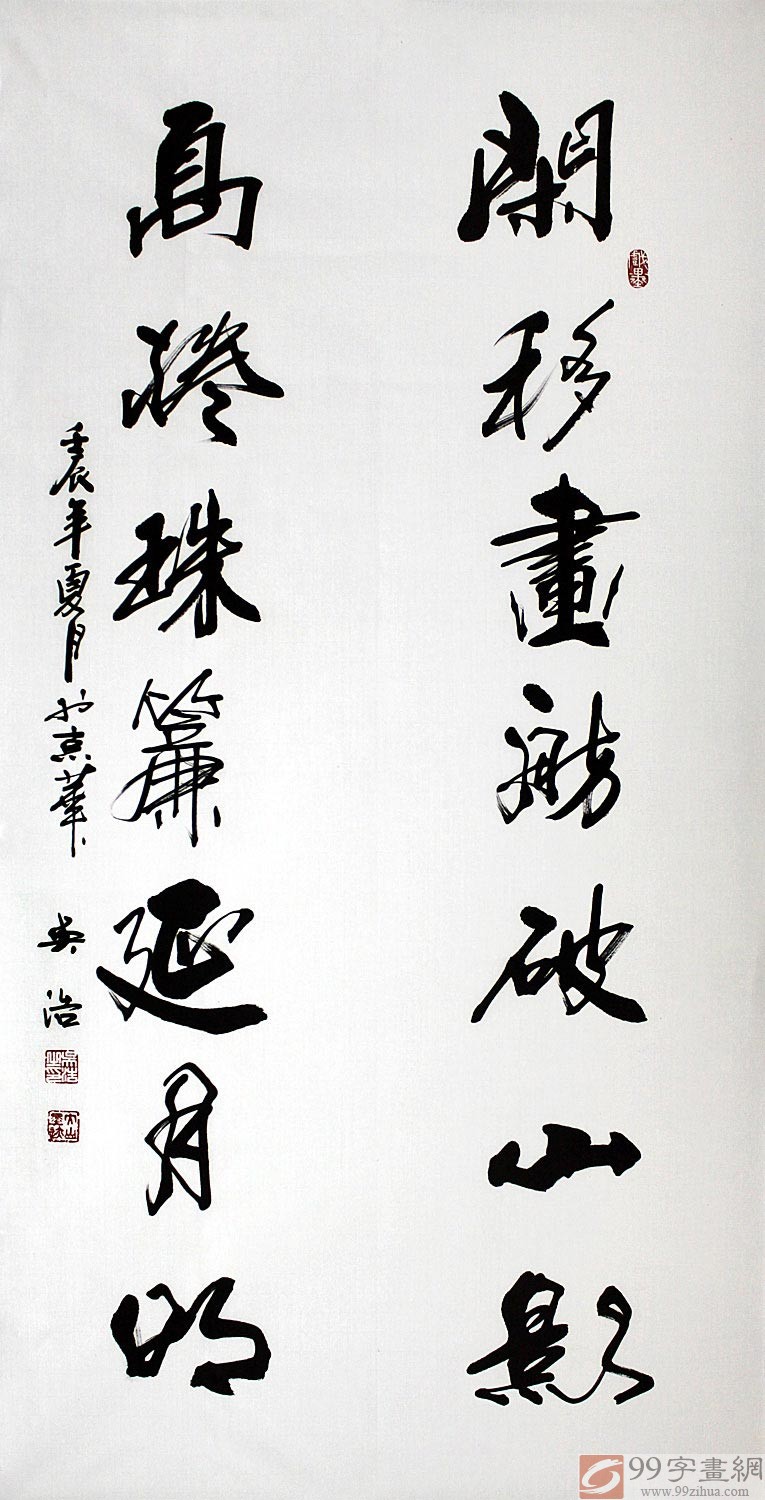 閑移畫舫破山影
高捲珠簾延月明
壬辰年夏月於京華 吳浩
99字畫網
www.99zihua.com